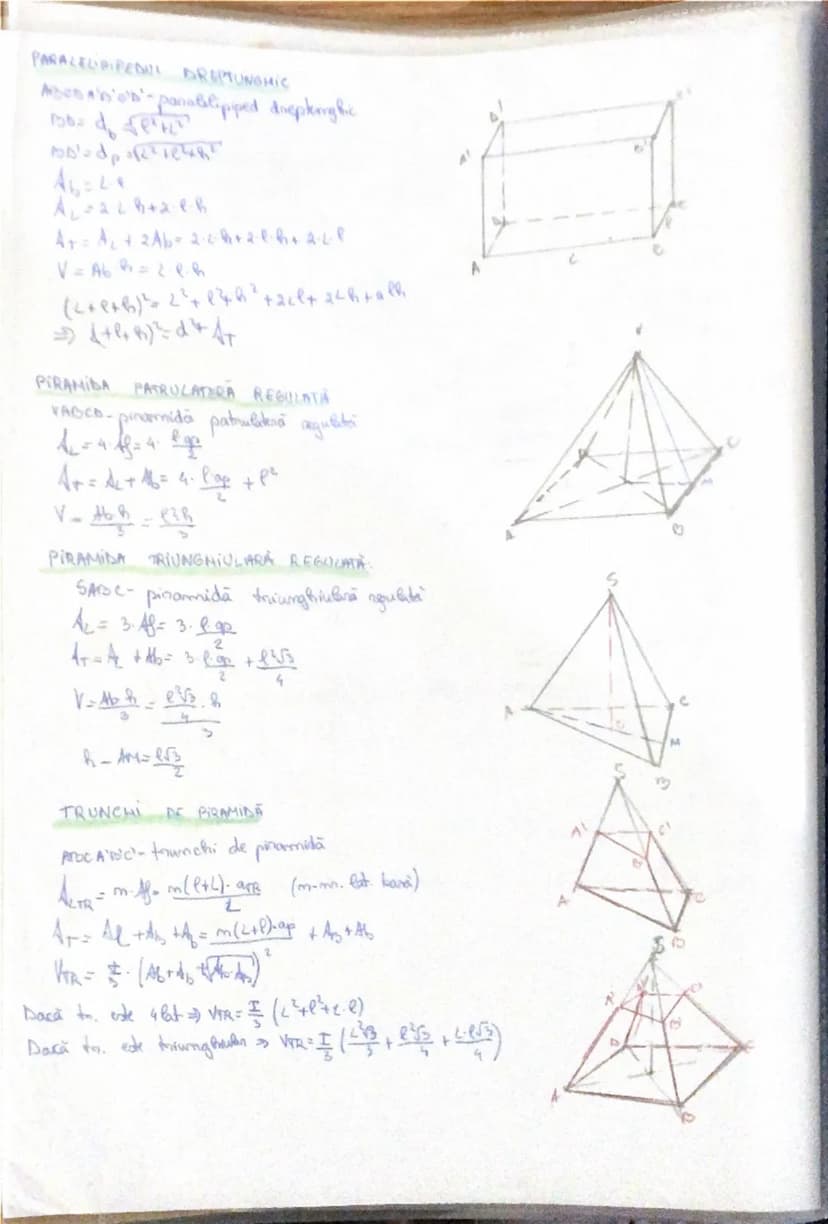 PARALELIPIPEDUL DREPTUNGHIC
ABCDA'B'C'D' - paralelipiped dreptunghic
BD = d_b = √(l²+L²)
BD' = d_p = √(L²+l²+h²)
A_b = L·l
A_L = 2·L·h+2·l·h
A_T = A_L + 2Ab = 2·L·h+2·l·h+2·L·l
V = Ab·h = L·l·h
(L+l+h)² = L²+l²+h²+2Ll+2Lh+2lh
⇒ (L+l+h)² = d²+A_T
PIRAMIDA PATRULATERĂ REGULATĂ
VABCD - piramidă patrulateră regulată
A_L = 4·Af = 4·l·ap/2
A_T = A_L + Ab = 4·l·ap/2 + l²
V = Ab·h/3 = l²·h/3
PIRAMIDA TRIUNGHIULARĂ REGULATĂ
SABC - piramidă triunghiulară regulată
A_L = 3·Af = 3·l·ap/2
A_T = A_L + Ab = 3·l·ap/2 + l²√3/4
V = Ab·h/3 = (l²√3/4·h)/3
h - AM = l√3/2
TRUNCHI DE PIRAMIDĂ
ABCA'B'C' - trunchi de piramidă
A_LTR = n·Af = n(l+L)·a_TR/2 (n-nr. lat. bază)
A_T = Al + A_B + A_b = n(L+l)·ap/2 + A_B+Ab
Dacă tr. este 4lat ⇒ V_TR = I/3 (L²+l²+L·l)
Dacă tr. este triunghiular ⇒ V_TR = I/3 (L²√3/3 + l²√3/4 + L·l√3/4)
D' C'
A' B'
D C
A L B
l
V
D C
M
A B
S
A C
O M
B
S
A' C'
B'
A C
B
S
A' D' C'
B'
D C
A B